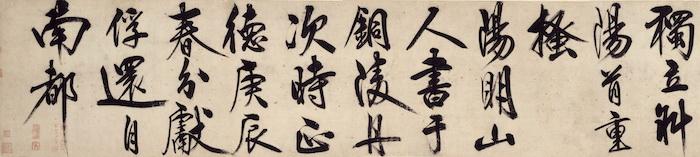 獨立斜
陽首重
搔
陽明山
人書于
銅陵舟
次時正
德庚辰
春分獻
俘還自
南都